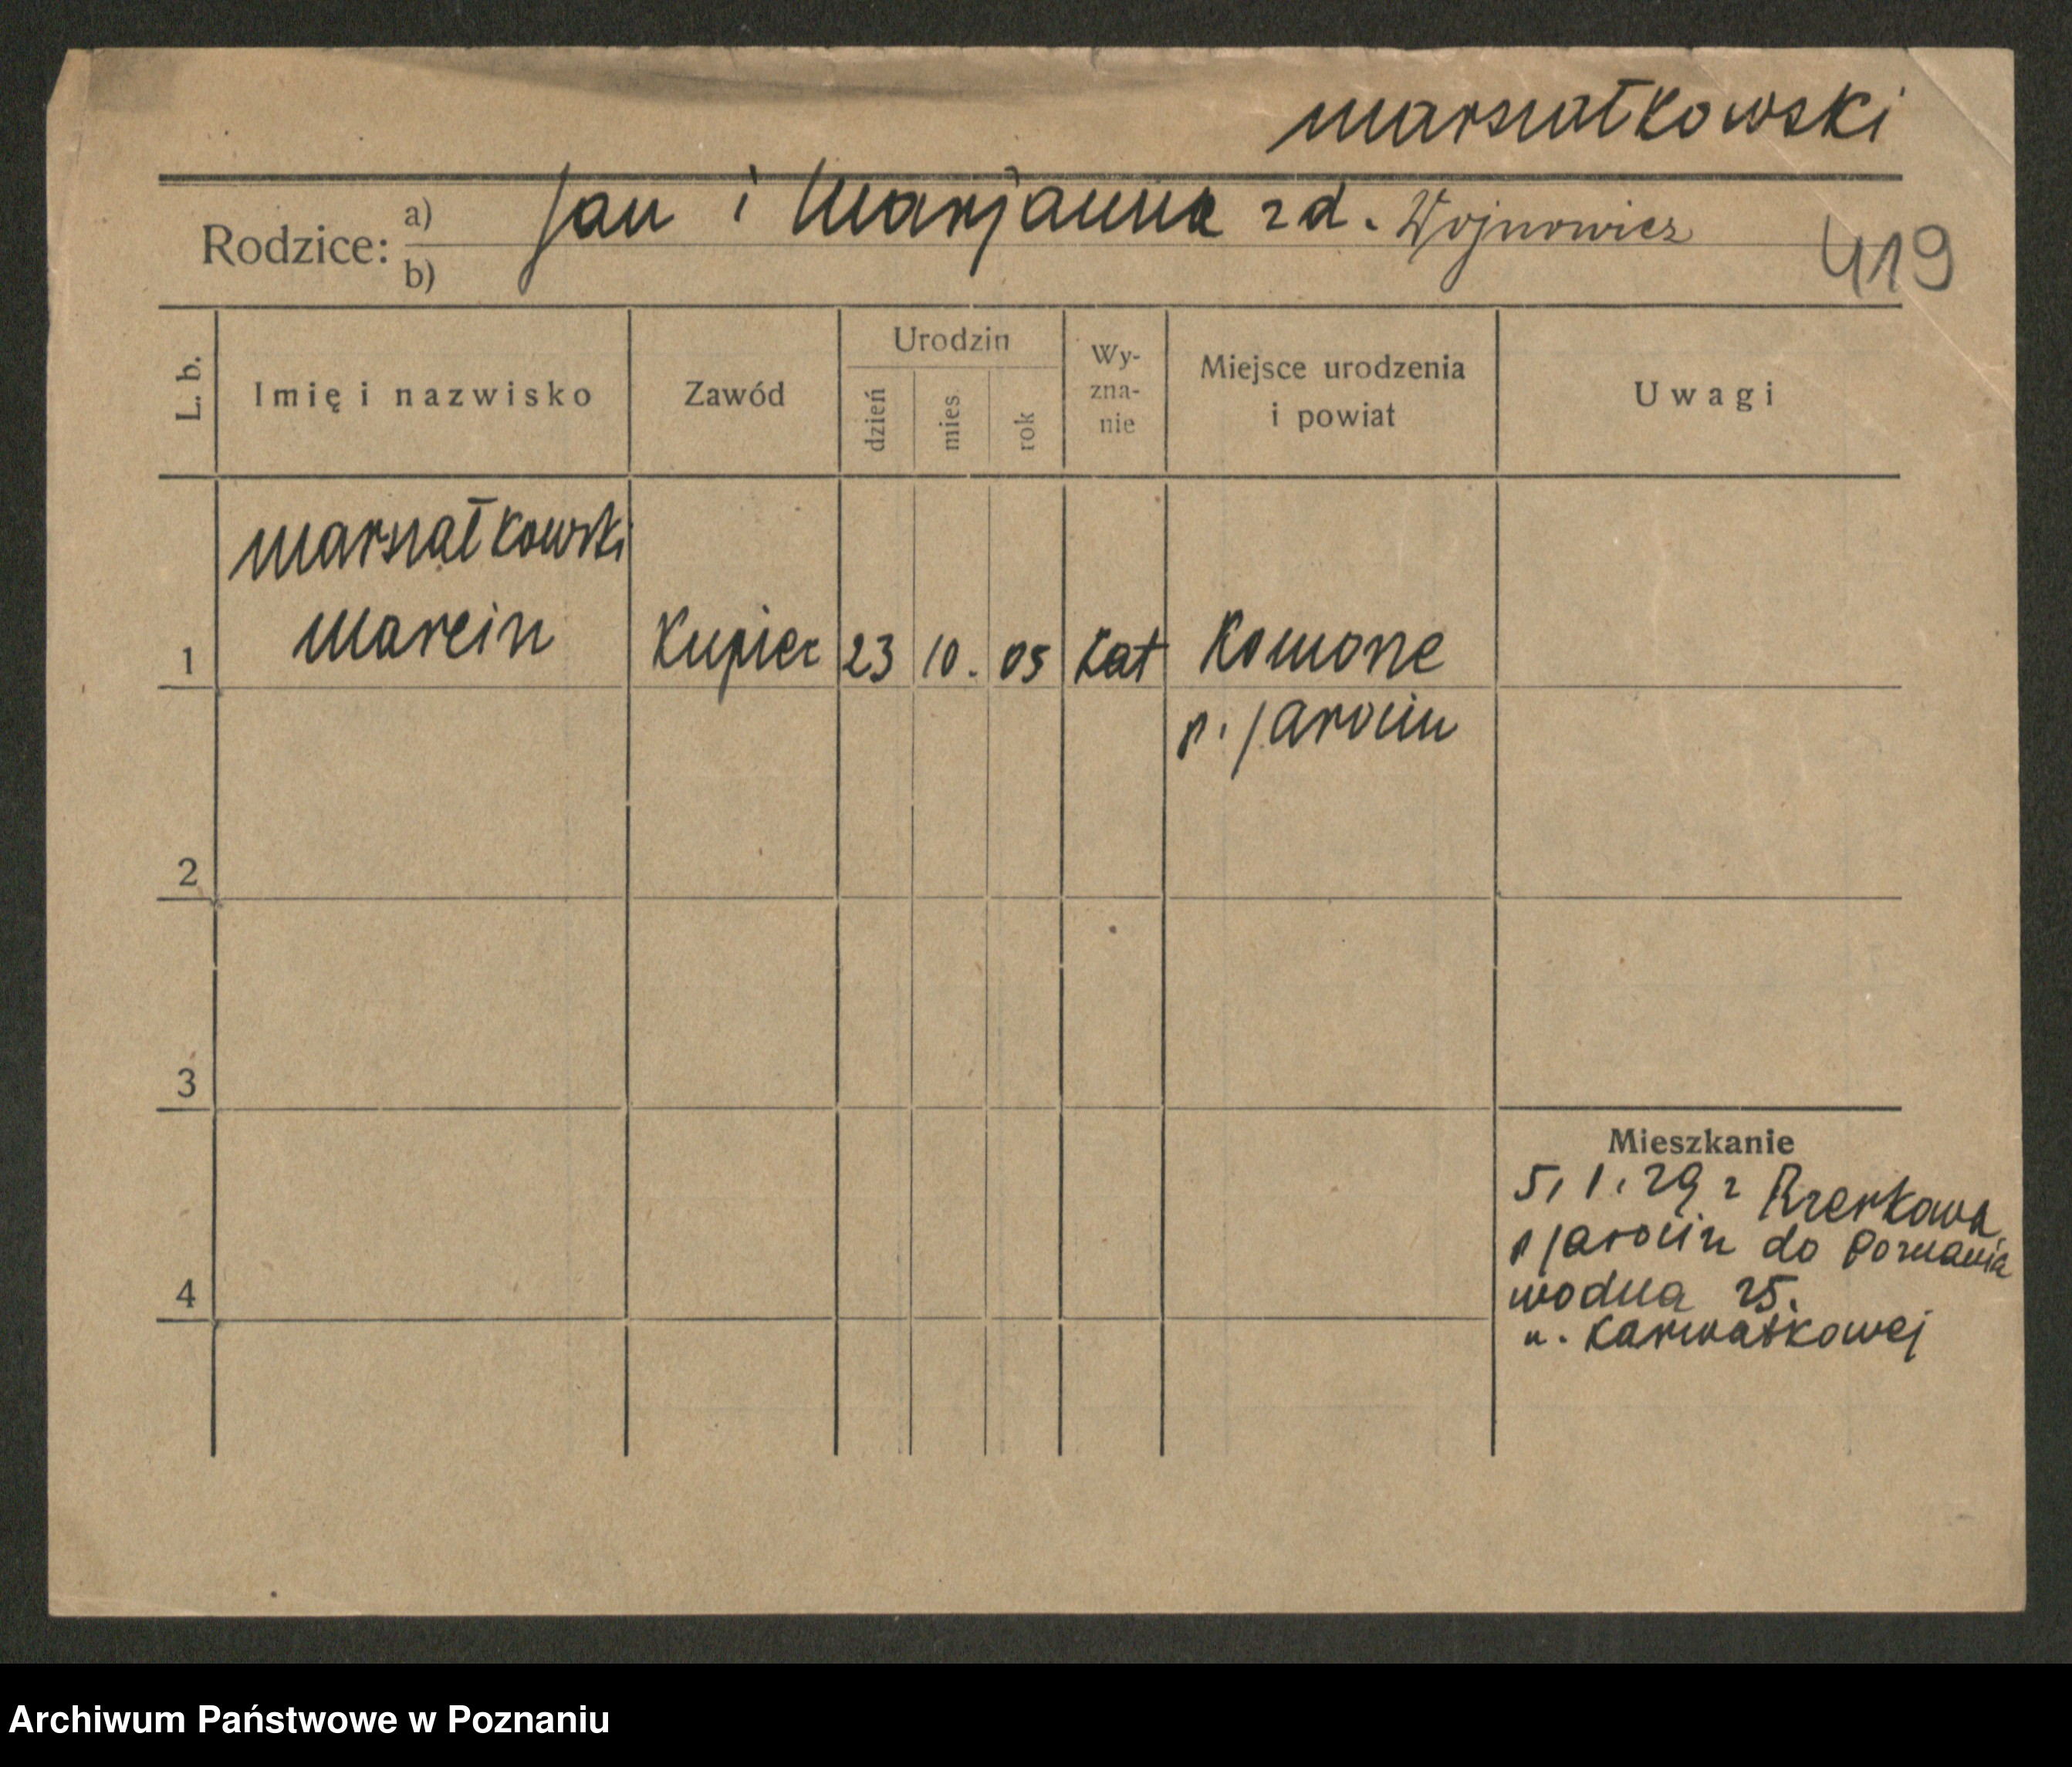 Marszałkowski
Rodzice: a) Jan i Marjanna zd. Wojnowicz
b)
419
L. b. Imię i nazwisko Zawód Urodzin dzień mies. rok Wy-zna-nie Miejsce urodzenia i powiat Uwagi
Marszałkowski
1 Marcin Kupiec 23 10. 05 Kat Komorze
p. Jarocin
2
3
Mieszkanie
5.1.29 z
p Jarocin do Poznania
4 Wodna 25.
u.
Archiwum Państwowe w Poznaniu